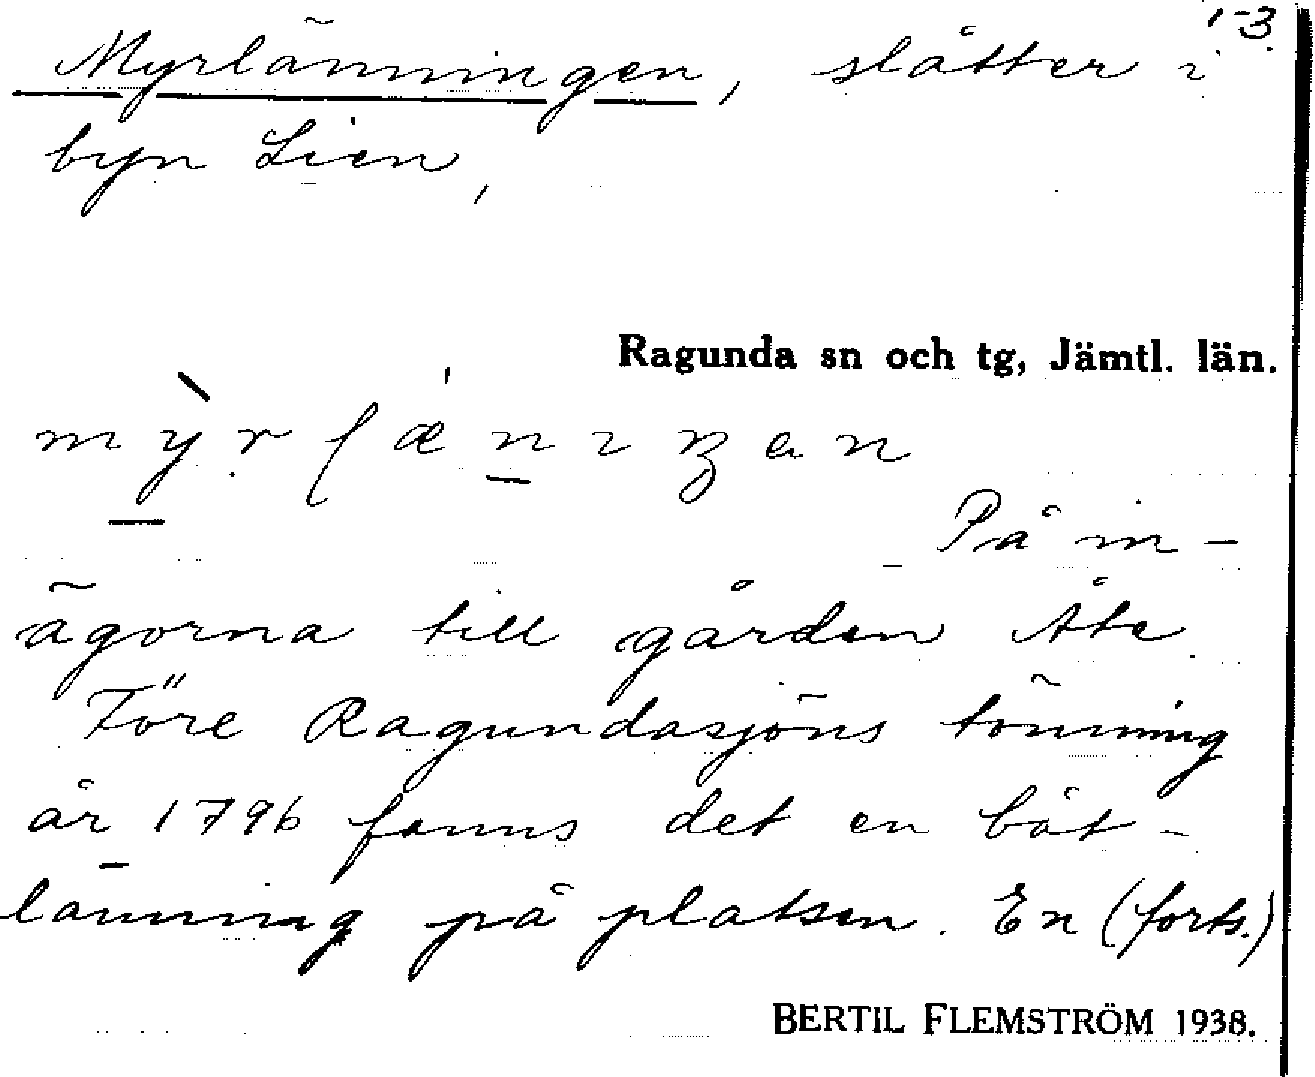 1-3
Myrlänningen, slåtter i
byn Lien,
Ragunda sn och tg, Jämtl. län.
På in-
ägorna till gården Åte.
Före Ragundasjöns tömning
år 1796 fanns det en båt-
länning på platsen. En (forts.)
BERTIL FLEMSTRÖM 1938.